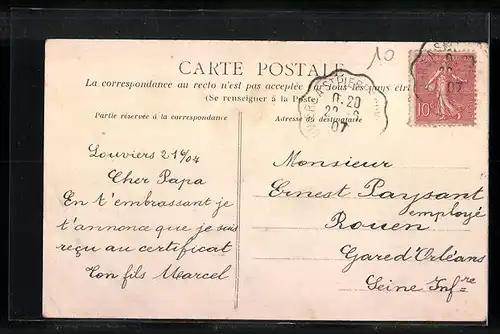 10
CARTE POSTALE
La correspondance au recto n'est pas acceptée par tous les pays étr
(Se renseigner à la Poste)
Partie réservée à la correspondance
Adresse du destinataire
ST PIERRE
9-20
22
07
07
10
Louviers 21
Cher Papa
En t'embrassant je
t'annonce que je suis
reçu au certificat
Ton fils Marcel
Monsieur
Ernest Paysant
employé
Rouen
Gare d'Orléans
Seine Infre